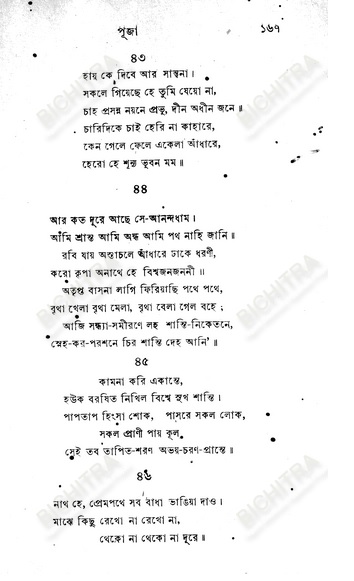 পূজা ১৬৭
৪৩
হায় কে দিবে আর সান্ত্বনা।
সকলে গিয়েছে হে তুমি যেয়ো না,
চাহ প্রসন্ন নয়নে প্রভু, দীন অধীন জনে॥
চারিদিকে চাই হেরি না কাহারে,
কেন গেলে ফেলে একেলা আঁধারে,
হেরো হে শূন্য ভুবন মম॥
৪৪
আর কত দূরে আছে সে-আনন্দধাম।
আমি শ্রান্ত আমি অন্ধ আমি পথ নাহি জানি॥
রবি যায় অস্তাচলে আঁধারে ঢাকে ধরণী,
করো কৃপা অনাথে হে বিশ্বজনজননী॥
অতৃপ্ত বাসনা লাগি ফিরিয়াছি পথে পথে,
বৃথা খেলা বৃথা মেলা, বৃথা বেলা গেল বহে;
আজি সন্ধ্যা-সমীরণে লহ শান্তি-নিকেতনে,
স্নেহ-কর-পরশনে চির শান্তি দেহ আনি'॥
৪৫
কামনা করি একান্তে,
হউক বরষিত নিখিল বিশ্বে সুখ শান্তি।
পাপতাপ হিংসা শোক, পাসরে সকল লোক,
সকল প্রাণী পায় কূল
সেই তব তাপিত-শরণ অভয়-চরণ-প্রান্তে॥
৪৬
নাথ হে, প্রেমপথে সব বাধা ভাঙিয়া দাও।
মাঝে কিছু রেখো না রেখো না,
থেকো না থেকো না দূরে॥
BICHITRA